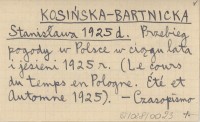 KOSIŃSKA-BARTNICKA
Stanisława 1925 d. Przebieg
pogody w Polsce w ciągu lata
i jesieni 1925 r. (Le cours
du temps en Pologne. Été et
Automne 1925). — Czasopismo